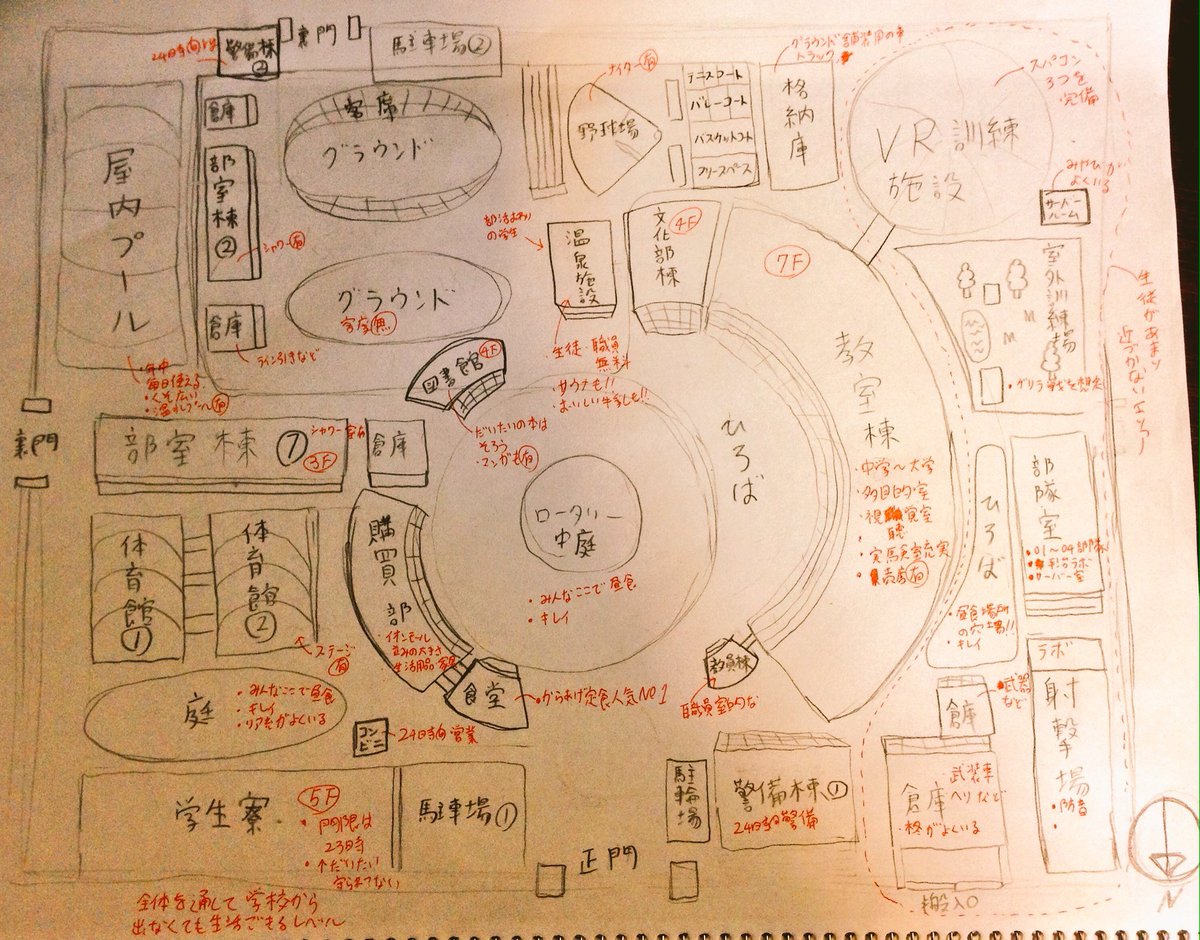 24時間
警備棟
②
裏門
駐車場②
グラウンド舗装用の車
トラック
スパコン
3つを
完備
ナイター有
テニスコート
バレーコート
バスケットコート
フリースペース
格納庫
VR訓練
施設
みやびが
よくいる
サーバー
ルーム
屋内プール
年中
毎日使える
・くそ広い
・温水プール有
倉庫
部室棟②
シャワー有
倉庫
ライン引きなど
客席
グラウンド
グラウンド
客席無
野球場
部活まわり
の学生
温泉施設
・生徒・職員
無料
・サウナも!!
・おいしい牛乳も!!
文化部棟
4F
7F
教室棟
・中学~大学
・多目的室
・視聴覚室
・実験室充実
・売店有
室外訓練場
・ゲリラ戦を想定
生徒があまり
近づかないエリア
図書館
4F
・だいたいの本は
そろう
・マンガも有
ひろば
ロータリー
中庭
・みんなここで昼食
・キレイ
裏門
部室棟①
シャワー室有
3F
倉庫
体育館①
体育館②
ステージ
有
購買部
・イオンモール
並みの大きさ
生活用品 家具
食堂
・からあげ定食人気No1
教員棟
職員室的な
ひろば
・昼食場所
の穴場!!
・キレイ
部隊室
・01~04部隊
・サーバー室
ラボ
射撃場
・防音
倉庫
・武器
など
庭
・みんなここで昼食
・キレイ
・リア充がよくいる
コン
ビニ
24時間営業
学生寮
5F
・門限は
23時
・↑だいたい
守られてない
駐車場①
正門
駐輪場
警備棟①
24時間警備
倉庫
武装車
ヘリなど
・柊がよくいる
搬入口
N
全体を通して学校から
出なくても生活できるレベル